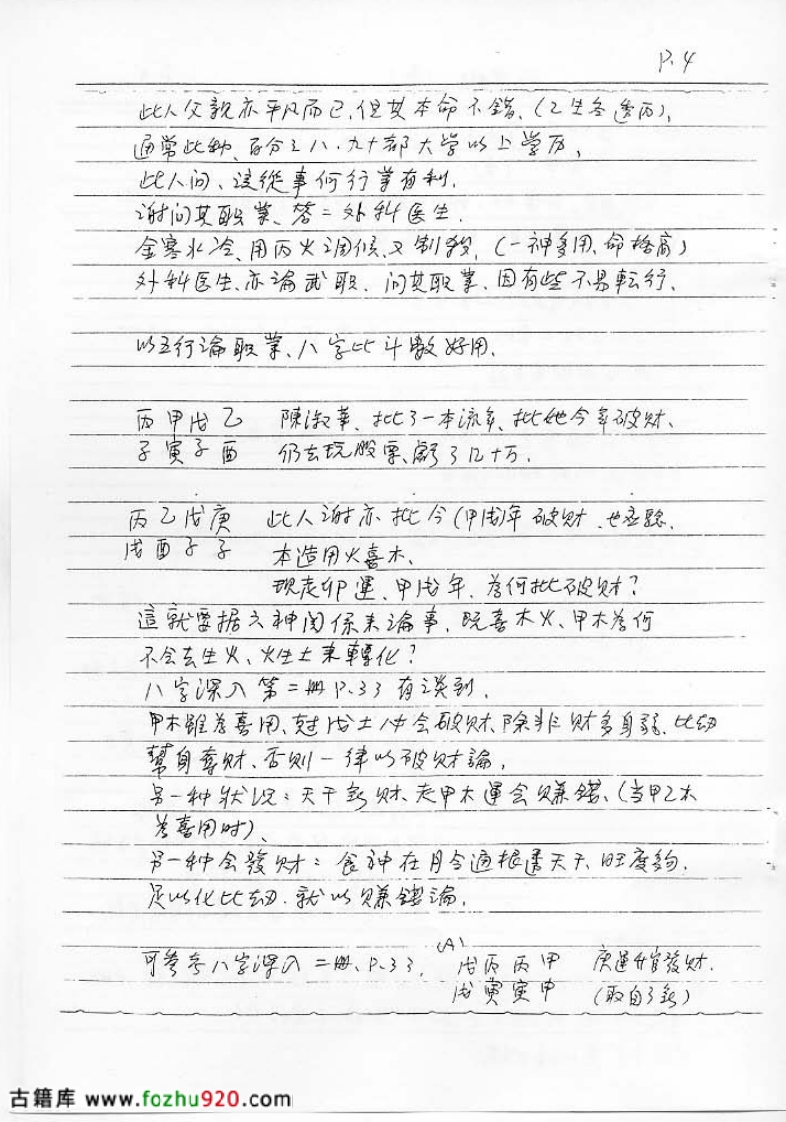 P.4
此人父親亦平凡而已,但其本命不錯、(乙生冬透丙),
通常此种、百分之八、九十都大学以上学历,
此人问、該從事何行業有利.
謝问其职業、答=外科医生.
金寒水冷、用丙火调候、又制殺,(一神多用、命格高)
外科医生、亦論武职、问其职業、因有些不易転行、
以五行論职業、八字比斗数好用.
丙甲戊乙 陳淑華、批了一本流年、批她今年破财、
子寅子酉 仍去玩股票、虧了几十万.
丙乙戊庚 此人謝亦批今(甲戌)年破财、也应驗.
戌酉子子 本造用火喜木、
现走卯運、甲戌年、為何批破财?
這就要据六神関係来論事、既喜木火、甲木為何
不会去生火、火生土来轉化?
八字深入第二册P.33有谈到,
甲木雖為喜用、尅戊土必会破财、除非财多身弱、比劫
幫身奪财、否則一律以破财論,
另一种狀况:天干無财、走甲木運会赚錢、(当甲乙木
為喜用时)、
另一种会發财:食神在月令通根透天干、旺度夠、
足以化比劫、就以赚錢論,
可參考八字深入二册、P.33, (A) 戊丙丙甲 庚運 發财.
戌寅寅申 (取自了無)
古籍库 www.fozhu920.com